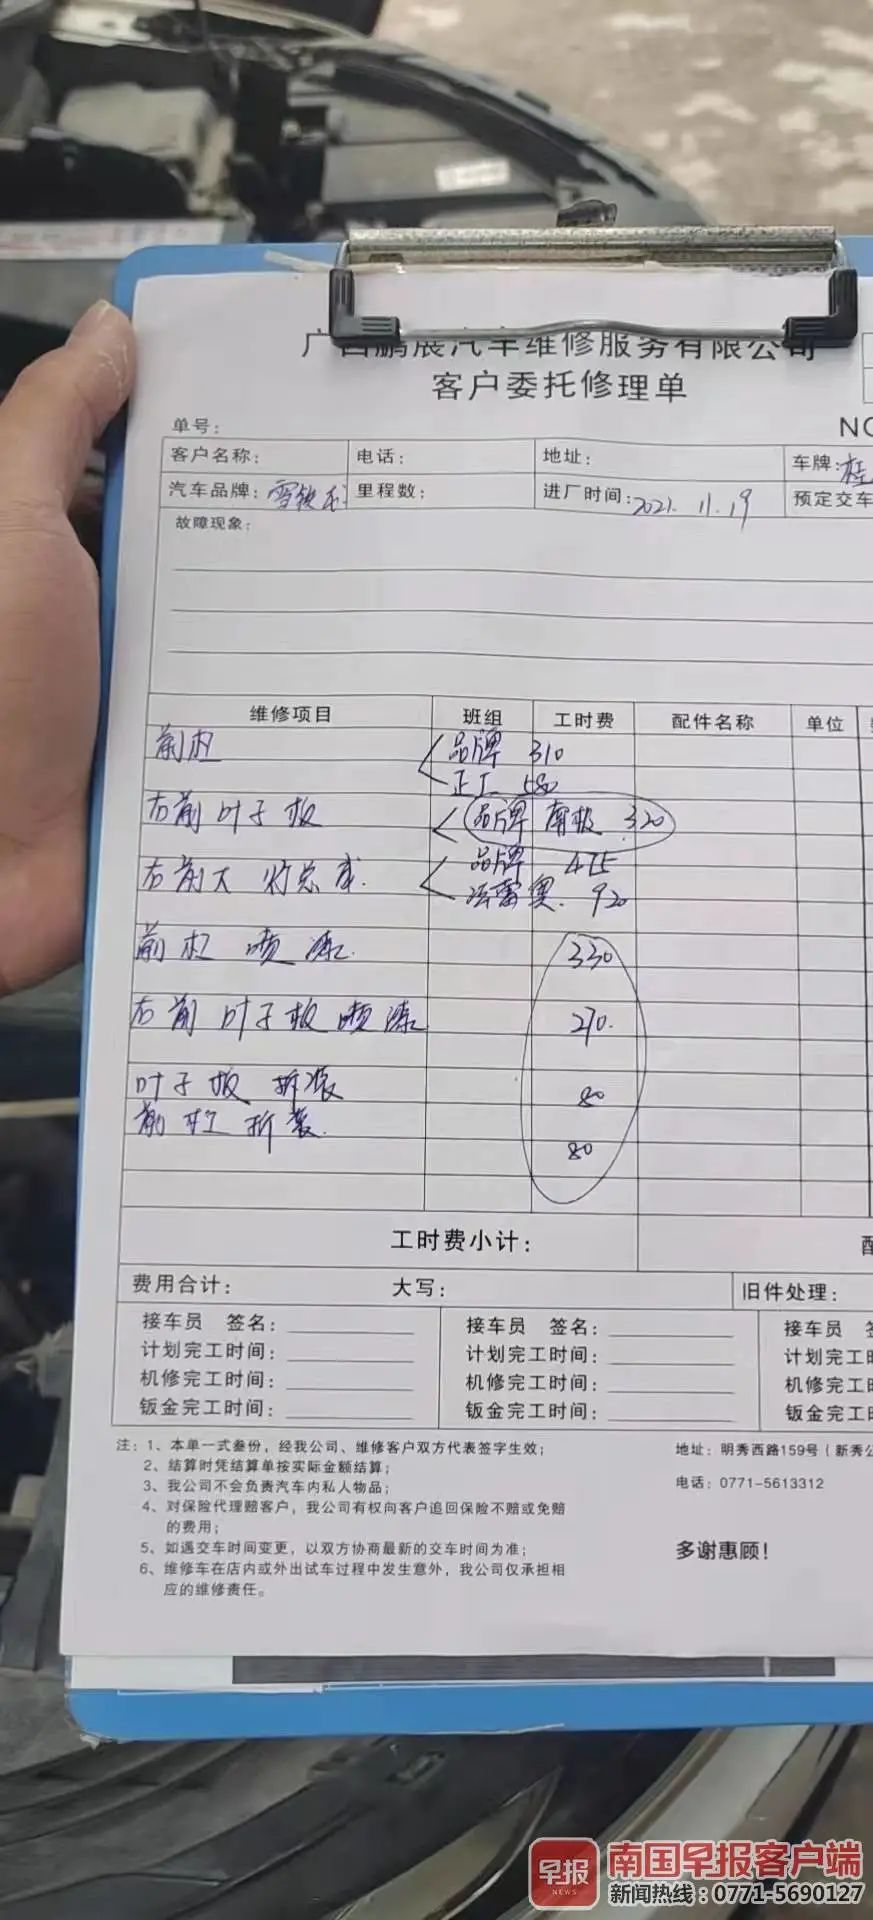 广西鹏展汽车维修服务有限公司
客户委托修理单
单号： NO
客户名称： 电话： 地址： 车牌：桂
汽车品牌：雪铁龙 里程数： 进厂时间：2021.11.19 预定交车
故障现象：
维修项目 班组 工时费 配件名称 单位
前杠 品牌 310
正厂 580
右前叶子板 品牌 320
右前大灯总成 品牌 475
法雷奥 920
前杠喷漆 330
右前叶子板喷漆 270
叶子板拆装 80
前杠拆装 80
工时费小计： 配
费用合计： 大写： 旧件处理：
接车员 签名： 接车员 签名： 接车员 签
计划完工时间： 计划完工时间： 计划完工时
机修完工时间： 机修完工时间： 机修完工时
钣金完工时间： 钣金完工时间： 钣金完工时
注：1、本单一式叁份，经我公司、维修客户双方代表签字生效； 地址：明秀西路159号（新秀公
2、结算时凭结算单按实际金额结算；
3、我公司不会负责汽车内私人物品； 电话：0771-5613312
4、对保险代理赔客户，我公司有权向客户追回保险不赔或免赔
的费用；
5、如遇交车时间变更，以双方协商最新的交车时间为准； 多谢惠顾！
6、维修车在店内或外出试车过程中发生意外，我公司仅承担相
应的维修责任。
早报 南国早报客户端
NEWS 新闻热线：0771-5690127